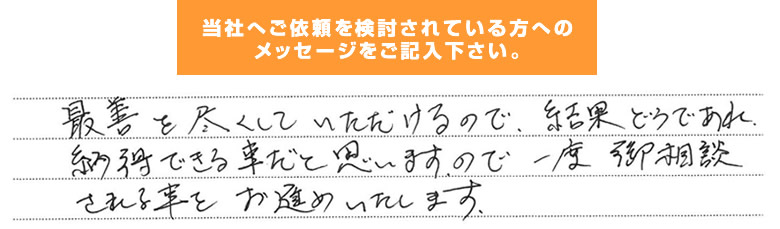 当社へご依頼を検討されている方への
メッセージをご記入下さい。
最善を尽くしていただけるので、結果どうであれ、
納得できる事だと思います。ので一度御相談
される事をお進めいたします。